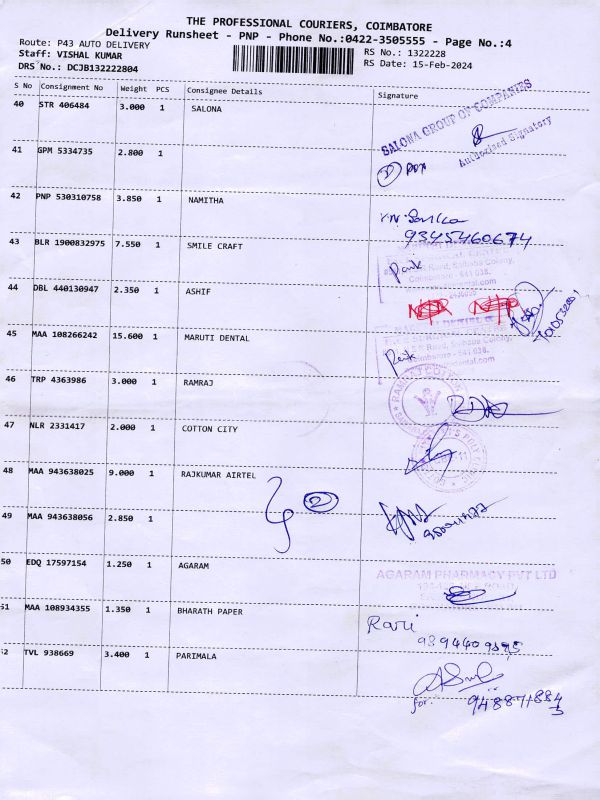 THE PROFESSIONAL COURIERS, COIMBATORE
Delivery Runsheet - PNP - Phone No.:0422-3505555 - Page No.:4
Route: P43 AUTO DELIVERY
Staff: VISHAL KUMAR
DRS No.: DCJB132222804
RS No.: 1322228
RS Date: 15-Feb-2024
S No Consignment No Weight PCS Consignee Details Signature
40 STR 406484 3.000 1 SALONA
SALONA GROUP OF COMPANIES
Authorised Signatory
41 GPM 5334735 2.800 1
42 PNP 530310758 3.850 1 NAMITHA
9345460674
43 BLR 1900832975 7.550 1 SMILE CRAFT
Road, Saibaba Colony,
Coimbatore - 641 038.
44 DBL 440130947 2.350 1 ASHIF
45 MAA 108266242 15.600 1 MARUTI DENTAL
Road, Saibaba Colony,
Coimbatore - 641 038.
46 TRP 4363986 3.000 1 RAMRAJ
47 NLR 2331417 2.000 1 COTTON CITY
48 MAA 943638025 9.000 1 RAJKUMAR AIRTEL
2
49 MAA 943638056 2.850 1
50 EDQ 17597154 1.250 1 AGARAM
AGARAM PHARMACY PVT LTD
51 MAA 108934355 1.350 1 BHARATH PAPER
Ravi
52 TVL 938669 3.400 1 PARIMALA
for.